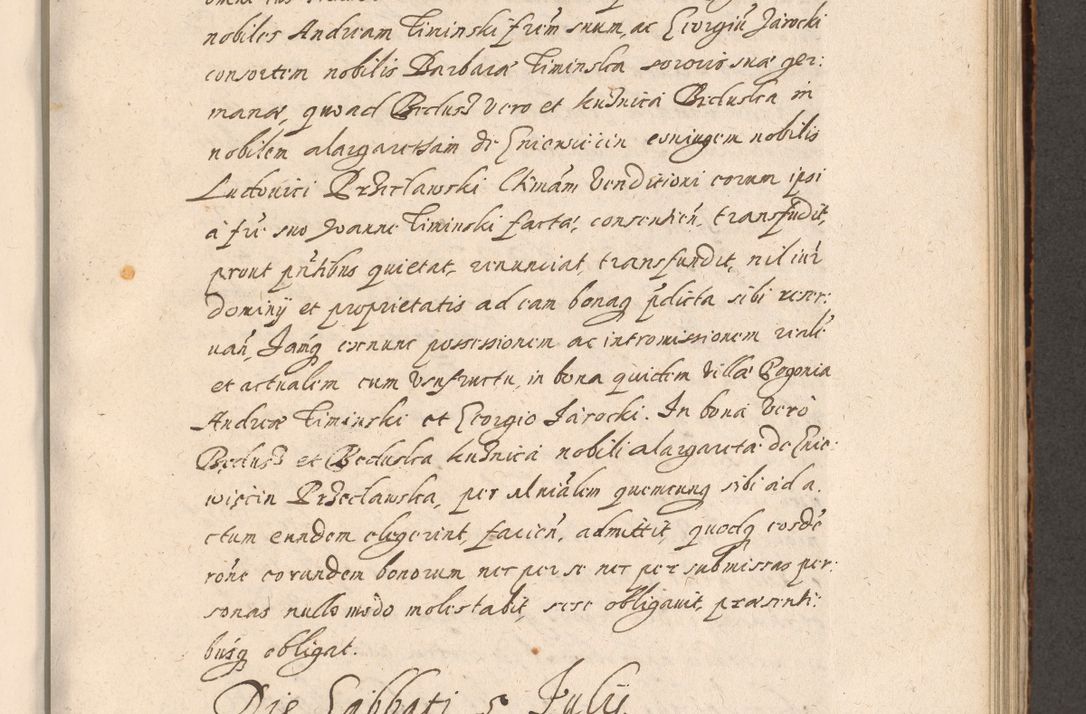 nobiles Andream Timinski frēm suum, ac Georgiū Jarocki
consortem nobilis Barbaræ Timinska sororis suæ ger:
manæ, quo ad Bedusz vero et kuznica Beduska in
nobilem Margaretham de Gniewięcin coniugem nobilis
Ludovici Przecławski
venditioni eorum ipsi
à frē suo Joanne Timinski factæ, consentień, transfudit,
prout pntibus quietat, renunciat, transfundit, nil iur
dominÿ et proprietatis ad eam bonaq pdicta sibi reser:
uań, Jamq exnunc possessionem ac intromissionem realē
et actualem cum vsufructu, in bona quidem villæ Pogonia
Andreæ Timinski et Georgio Jarocki. In bona verò
Bedusz et Beduska kuznica nobili Margareta de Gnie:
więcin Przecławska, per Mniālem quemcunq sibi ad a:
ctum eundem elegerint, facień, admittit, quodq eosdē
rōne eorundem bonorum nec per se nec per submissas per:
sonas nullo modo molestabit, sese obligauit, præsenti:
busq obligat.
Die Sabbati 5 Julij